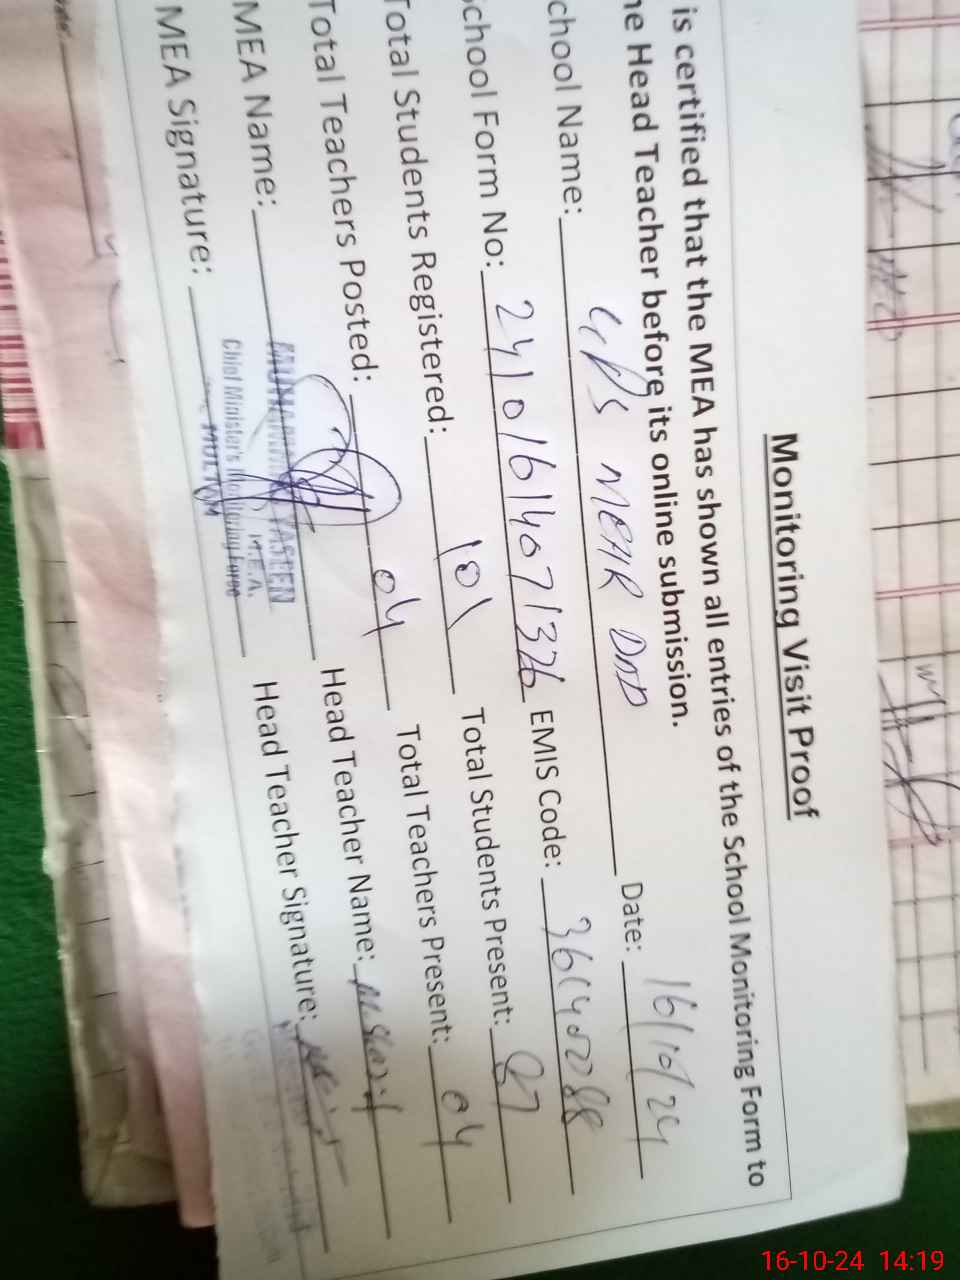 Monitoring Visit Proof
is certified that the MEA has shown all entries of the School Monitoring Form to
he Head Teacher before its online submission.
chool Name: GPS MEHR DAD Date: 16/10/24
School Form No: 24101614071326 EMIS Code:
Total Students Registered: 101 Total Students Present: 87
Total Teachers Posted: 04 Total Teachers Present: 04
MEA Name: Head Teacher Name:
MEA Signature: Head Teacher Signature:
YASEEN
M.E.A.
Chief Minister's Monitoring Force
MULTAN
16-10-24 14:19